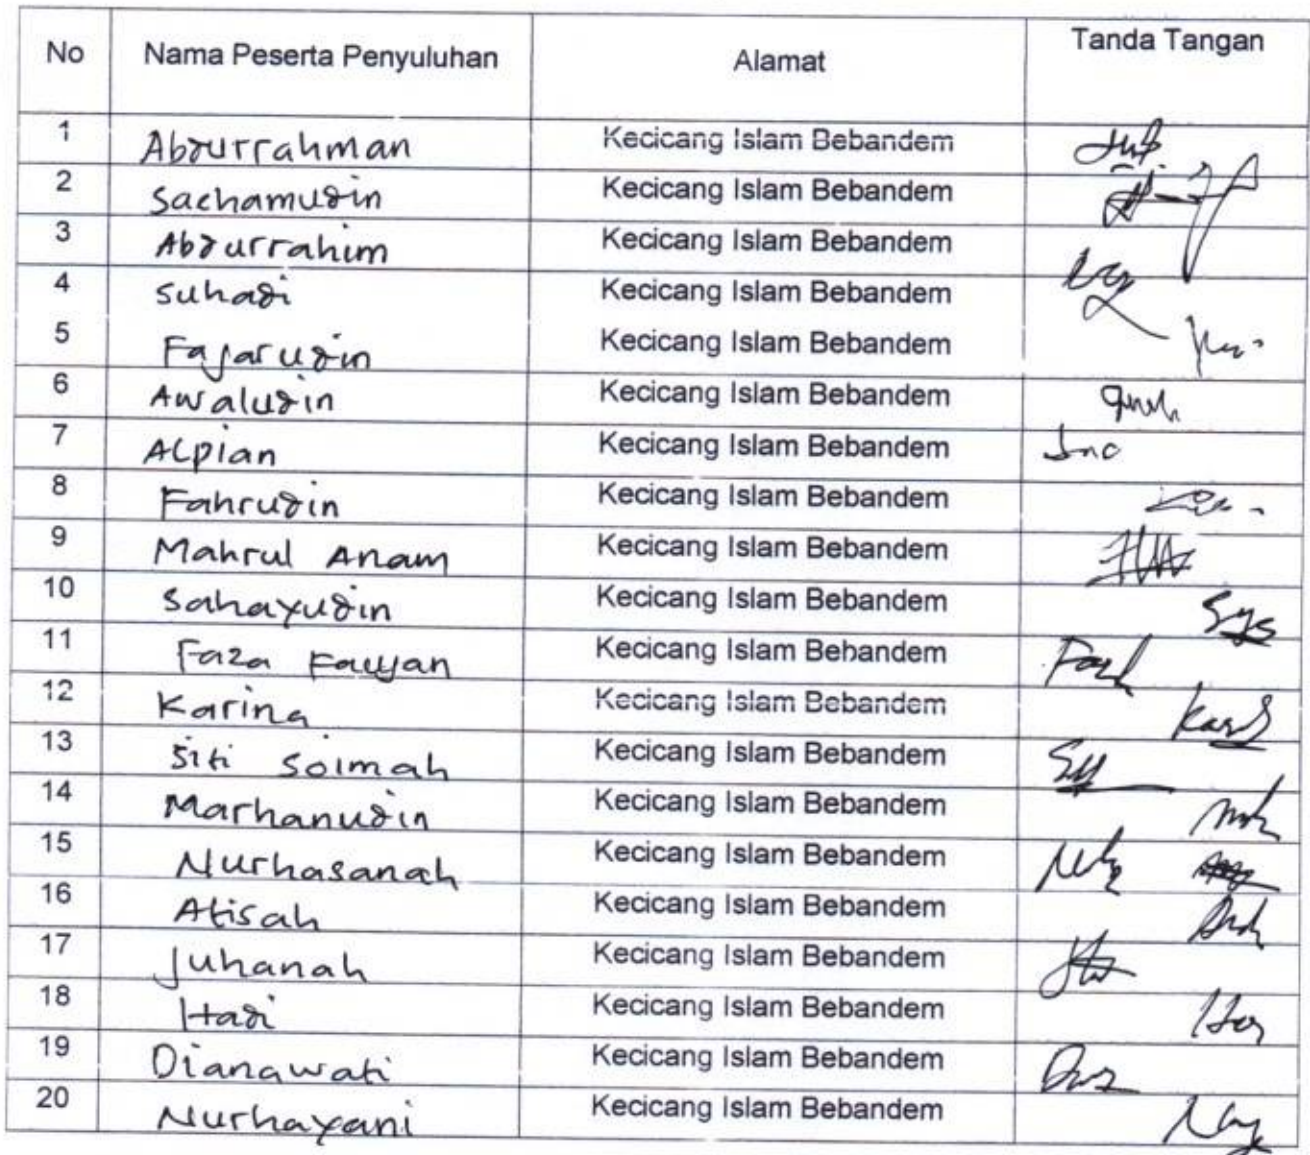 No Nama Peserta Penyuluhan Alamat Tanda Tangan
1 Abdurrahman Kecicang Islam Bebandem
2 Sachamudin Kecicang Islam Bebandem
3 Abdurrahim Kecicang Islam Bebandem
4 Suhadi Kecicang Islam Bebandem
5 Fajarudin Kecicang Islam Bebandem
6 Awaludin Kecicang Islam Bebandem
7 Alpian Kecicang Islam Bebandem
8 Fahrudin Kecicang Islam Bebandem
9 Mahrul Anam Kecicang Islam Bebandem
10 Sahayudin Kecicang Islam Bebandem
11 Faza Fauyan Kecicang Islam Bebandem
12 Karina Kecicang Islam Bebandem
13 Siti Soimah Kecicang Islam Bebandem
14 Marhanudin Kecicang Islam Bebandem
15 Nurhasanah Kecicang Islam Bebandem
16 Atisah Kecicang Islam Bebandem
17 Juhanah Kecicang Islam Bebandem
18 Hadi Kecicang Islam Bebandem
19 Dianawati Kecicang Islam Bebandem
20 Nurhayani Kecicang Islam Bebandem